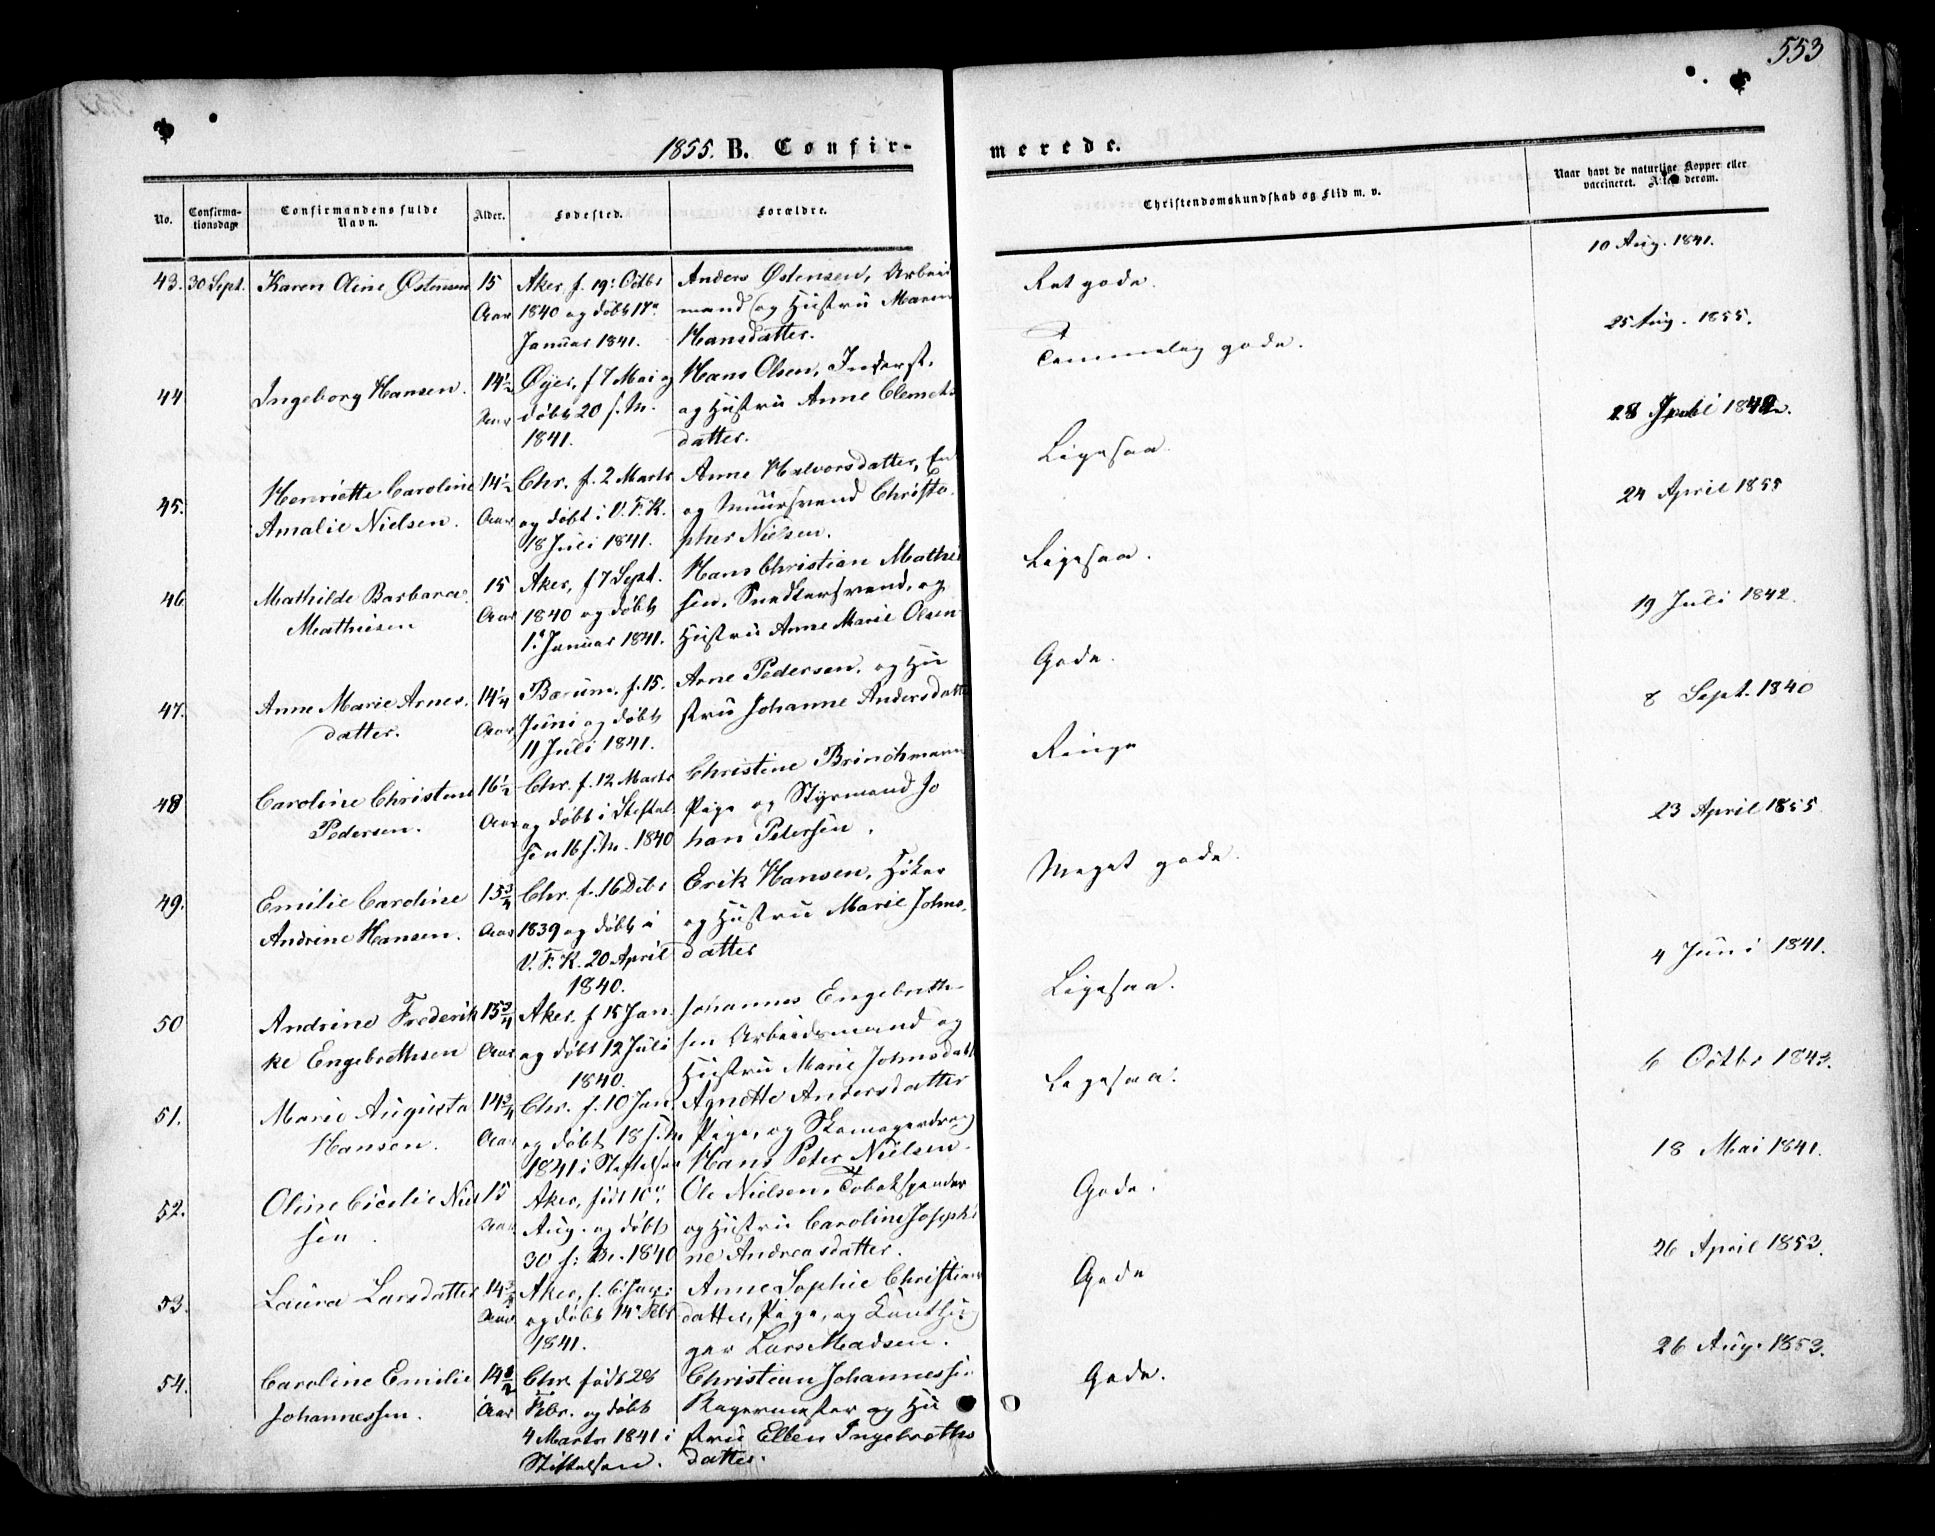 553
1855. B. Confir-
merede.
No.
Confirma-
tionsdag.
Confirmandens fulde
Navn.
Alder.
Fødested.
Forældre.
Christendomskundskab og Flid m. v.
Naar havt de naturlige Kopper eller
vaccineret. derom.
43. 30 Sept. Karen Oline Østensen 15 Aker f. 19: Octbr Anders Østensen, Arbeids
Aar 1840 og døbt 17de mand og Hustru Maren
Januar 1841. Hansdatter.
Ret gode.
10 Aug. 1841.
44 Ingeborg Hansen. 14½ Øyer, f 7 Mai og Hans Olsen, Inderst,
Aar døbt 20 s. M. og Hustru Anne Clemets
1841. datter.
Temmelig gode.
25 Aug. 1855.
45. Henriette Caroline 14½ Chr. f. 2 Marts Anne Halvorsdatter,
Amalie Nielsen. Aar og døbt i V. F. K. og Muursvend Christo
18 Juli 1841. pher Nielsen.
Ligesaa
28 Juli 1842.
46 Mathilde Barbara 15 Aker, f 7 Sept. Hans Christian Mathi
Mathisen Aar 1840 og døbt sen, Snedkersvend, og
1. Januar 1841. Hustru Anne Marie Olsen
Ligesaa.
24 April 1855
47. Anne Marie Arnes 14¼ Bærum, f. 15. Arne Pedersen, og Hu
datter. Aar Juni og døbt stru Johanne Andersdatter
11 Juli 1841.
Gode.
19 Juli 1842.
48 Caroline Christine 16½ Chr. f. 12 Marts Christine Brinchmann
Pedersen. Aar og døbt i Stiftel Pige og Styrmand Jo
sen 16 s. M. 1840 han Petersen.
Ringe
8 Sept. 1840
49. Emilie Caroline 15¾ Chr. f. 16 Dcbr Erik Hansen, Høker
Andrine Hansen. Aar 1839 og døbt i og Hustru Marie Johns
V. F. K. 20 April datter
1840.
Meget gode.
23 April 1855
50 Andrine Frederik 15¾ Aker. f 15 Jan Johannes Engebreth
ke Engebrethsen Aar og døbt 12 Juli sen Arbeidsmand og
1840. Hustru Marie Johnsdatt
Ligesaa.
4 Juni 1841.
51. Marie Augusta 14¾ Chr. f. 10 Jan Agnette Andersdatter
Hansen. Aar og døbt 18 s. M Pige, og Skomagerdreng
1841 i Stiftelsen Hans Peter Nielsen.
Ligesaa.
6 Octbr 1843.
52. Oline Cicilie Niel 15 Aker, født 10de Ole Nielsen, Tobakspinder
sen. Aar Aug. og døbt og Hustru Caroline Josephi
30 s: M. 1840 ne Andreasdatter.
Gode.
18 Mai 1841.
53. Laura Larsdatter 14¾ Aker, f. 6 Jan: Anne Sophie Christians
Aar og døbt 14 Febr datter, Pige, og
1841. ger Lars Madsen.
Gode
26 April 1853.
54. Caroline Emilie 14½ Chr. født 28 Christian Johannessen
Johannessen. Aar Febr. og døbt Bagermester og Hu
4 Marts 1841 i stru Ellen Ingebreths
Stiftelsen. datter.
Gode.
26 Aug. 1853.